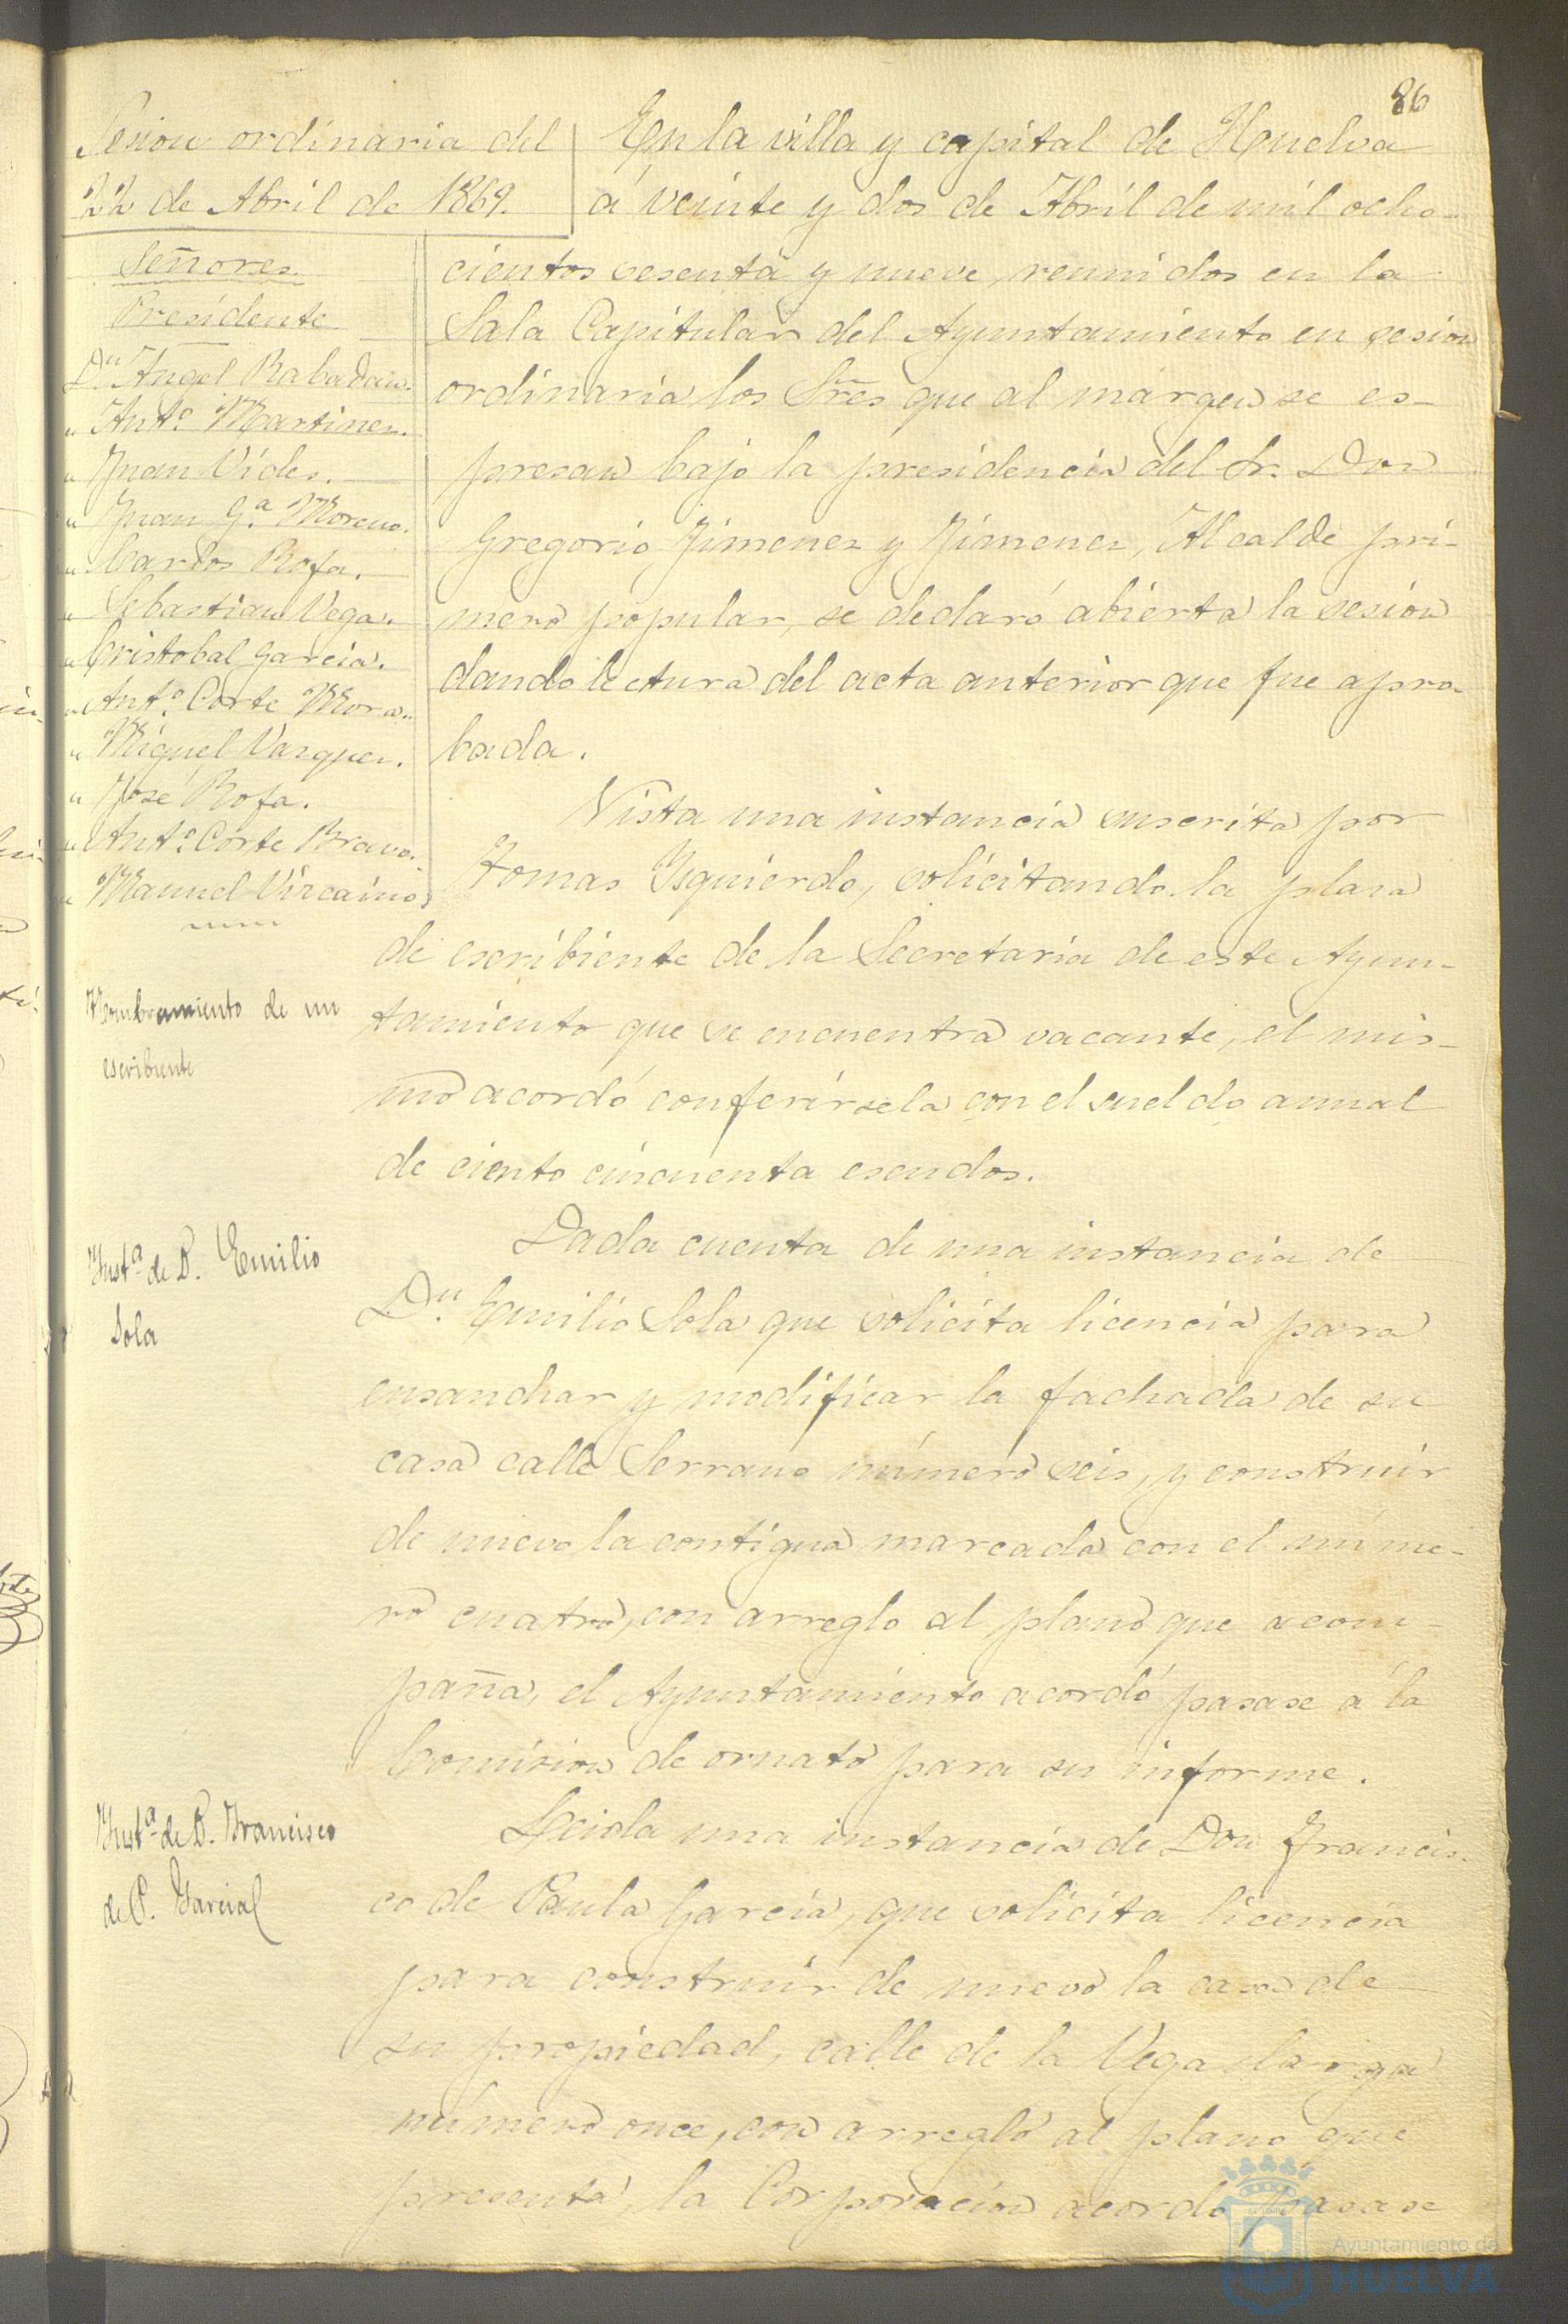 86
Sesion ordinaria del
22 de Abril de 1869.
Señores
Presidente
Dn. Angel Rabadan.
" Antº. Martinez.
" Juan Vides.
" Juan Gª. Moreno.
" Carlos Rofa.
" Sebastian Vega.
" Cristobal Garcia.
" Antº. Corte Mora.
" Miguel Vazquez.
" José Rofa.
" Antº. Corte Bravo.
" Manuel Vizcaino.
En la villa y capital de Huelva
á veinte y dos de Abril de mil ocho-
cientos sesenta y nueve, reunidos en la
Sala Capitular del Ayuntamiento en sesion
ordinaria los Sres que al margen se es-
presan bajo la presidencia del Sr. Don
Gregorio Jimenez y Jimenez, Alcalde pri-
mero popular, se declaró abierta la sesion
dando lectura del acta anterior que fue apro-
bada.
Nombramiento de un
escribiente
Vista una instancia suscrita por
Tomas Izquierdo, solicitando la plaza
de escribiente de la Secretaria de este Ayun-
tamiento que se encuentra vacante, el mis-
mo acordó conferirsela con el sueldo anual
de ciento cincuenta escudos.
Instª. de D. Emilio
Sola
Dada cuenta de una instancia de
Dn. Emilio Sola que solicita licencia para
ensanchar y modificar la fachada de su
casa calle Serrano número seis, y construir
de nuevo la contigua marcada con el núme-
ro cuatro, con arreglo al plano que acom-
paña, el Ayuntamiento acordó pasase á la
Comision de ornato para su informe.
Instª. de D. Francisco
de P. Garcia
Leida una instancia de Don Francis-
co de Paula Garcia, que solicita licencia
para construir de nuevo la casa de
su propiedad, calle de la Vega larga
número once, con arreglo al plano que
presenta, la Corporacion acordó pasase
Ayuntamiento de
HUELVA